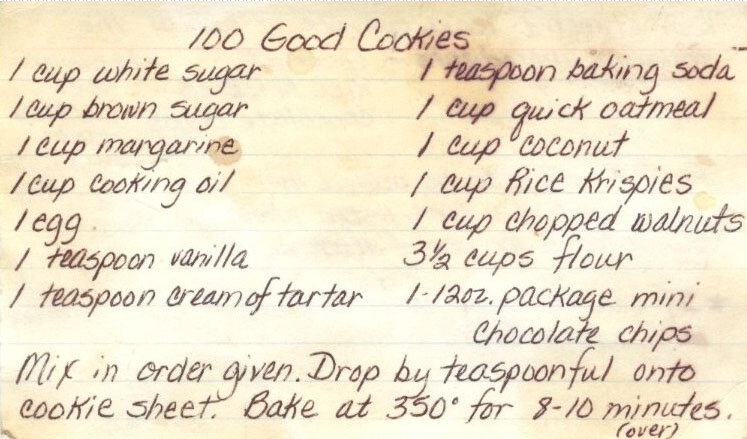 100 Good Cookies
1 cup white sugar
1 cup brown sugar
1 cup margarine
1 cup cooking oil
1 egg
1 teaspoon vanilla
1 teaspoon cream of tartar
1 teaspoon baking soda
1 cup quick oatmeal
1 cup coconut
1 cup Rice Krispies
1 cup chopped walnuts
3½ cups flour
1-12oz. package mini
chocolate chips
Mix in order given. Drop by teaspoonful onto
cookie sheet. Bake at 350° for 8-10 minutes.
(over)